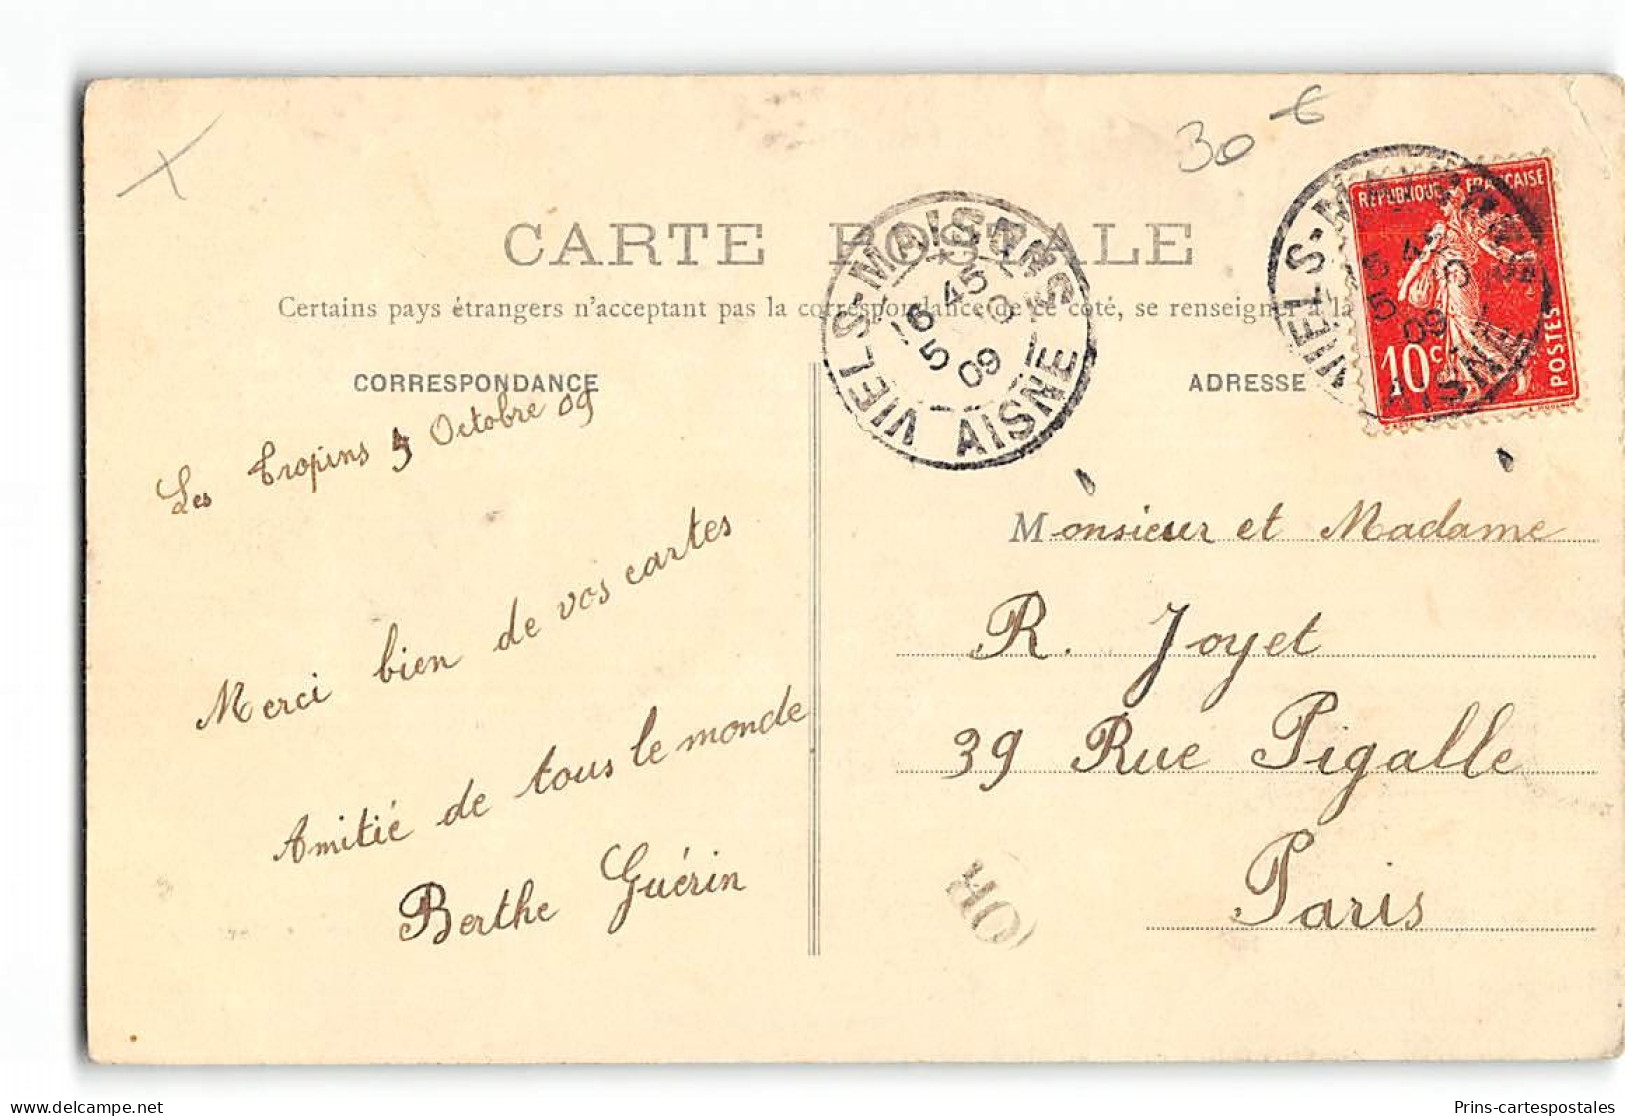 30 €
CARTE POSTALE
Certains pays étrangers n'acceptant pas la correspondance de ce côté, se renseigner à la
CORRESPONDANCE
Les Tropins 5 Octobre 09
Merci bien de vos cartes
Amitié de tous le monde
Berthe Guérin
VIELS-MAISONS
16 45
5 10
09
AISNE
ADRESSE
RÉPUBLIQUE FRANÇAISE
10 c.
POSTES
VIELS-MAISONS
45
5 10
09
AISNE
Monsieur et Madame
R. Joyet
39 Rue Pigalle
Paris
OR
delcampe.net
Prins-cartespostales